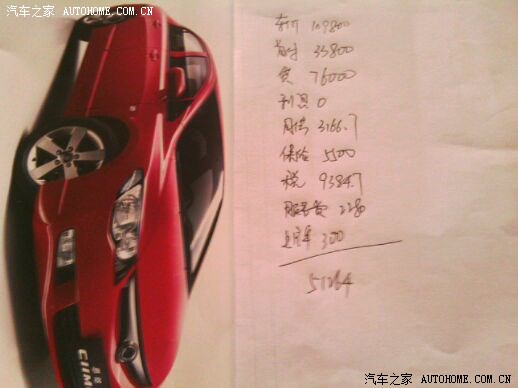 汽车之家 AUTOHOME.COM.CN
车价 109800
首付 33800
贷 76000
利息 0
月供 3166.7
保险 5500
税 9384.7
服务费 2280
上牌 300
51264
思域 CIIMO
汽车之家 AUTOHOME.COM.CN